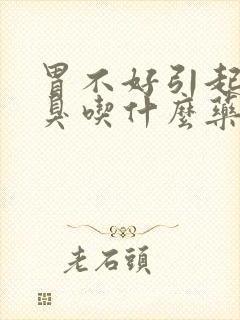 胃不好引起
臭喫什麼藥
老石頭